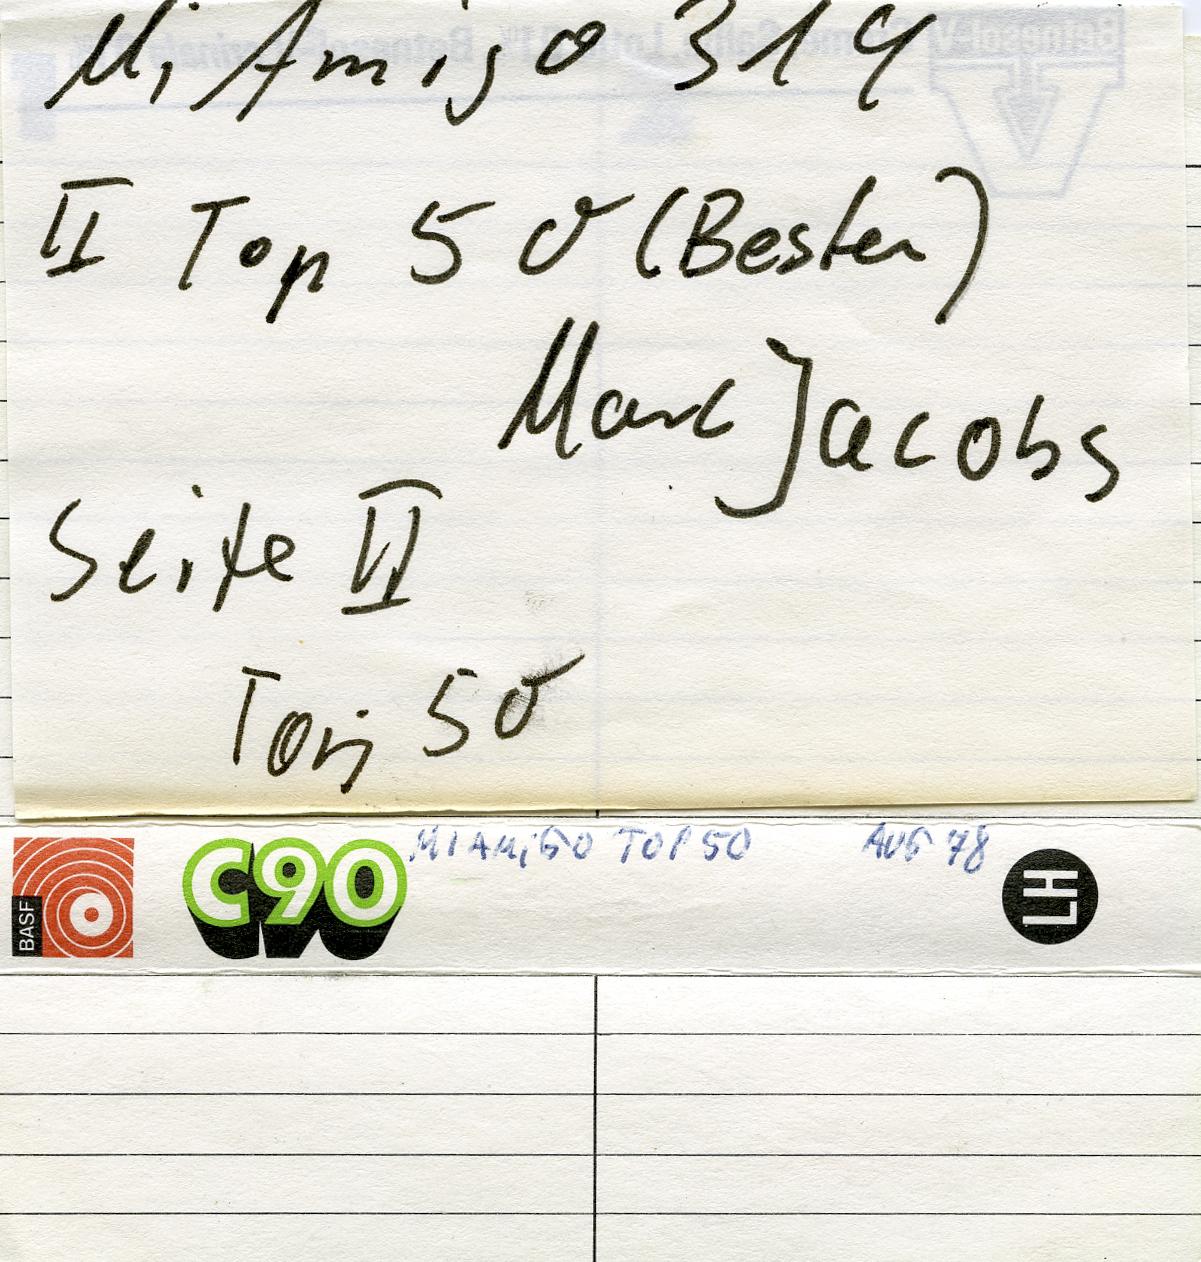 Mi Amigo 314
II Top 50 (Besten)
Marc Jacobs
Seite II
Top 50
BASF C90 MI AMiGO TOP 50 AUG 78 LH